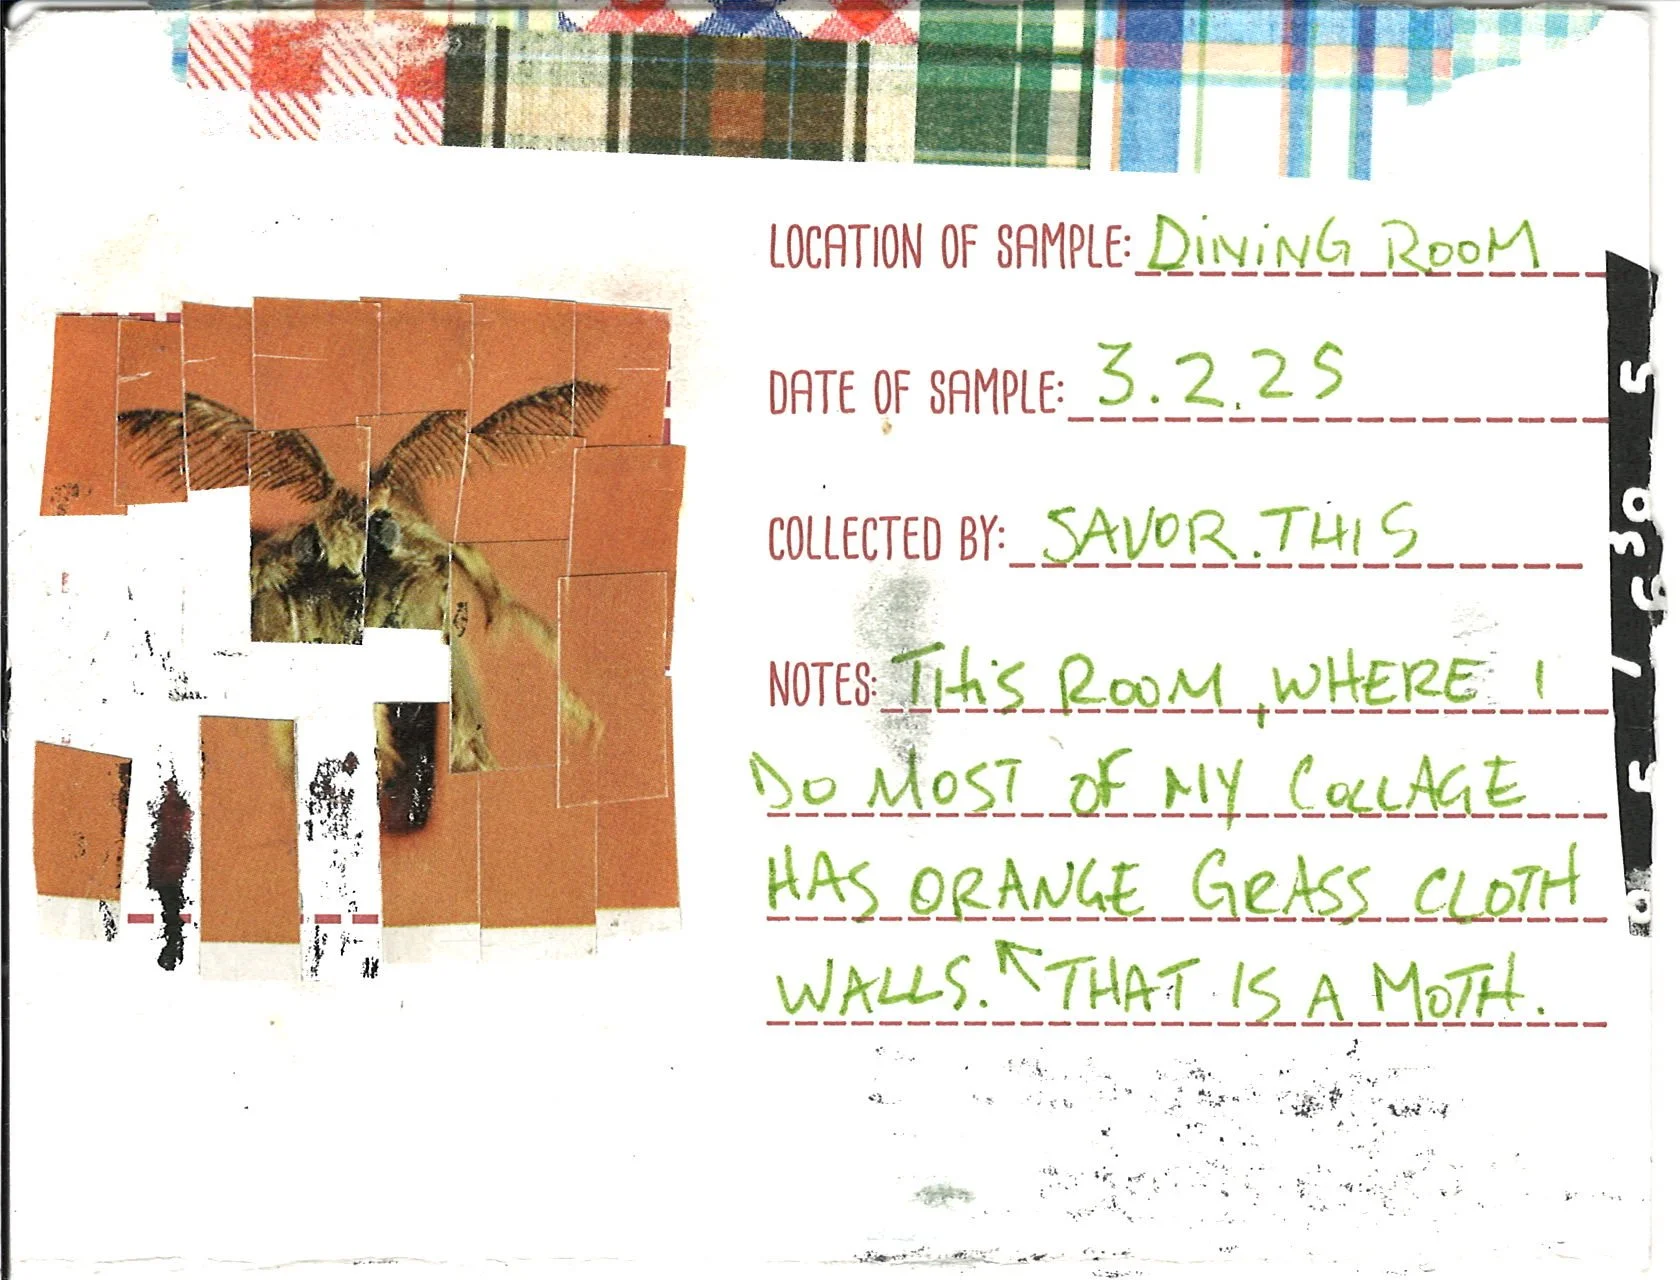 LOCATION OF SAMPLE: DINING ROOM
DATE OF SAMPLE: 3.2.25
COLLECTED BY: SAVOR.THIS
NOTES: THIS ROOM, WHERE I
DO MOST OF MY COLLAGE
HAS ORANGE GRASS CLOTH
WALLS. ↖ THAT IS A MOTH.